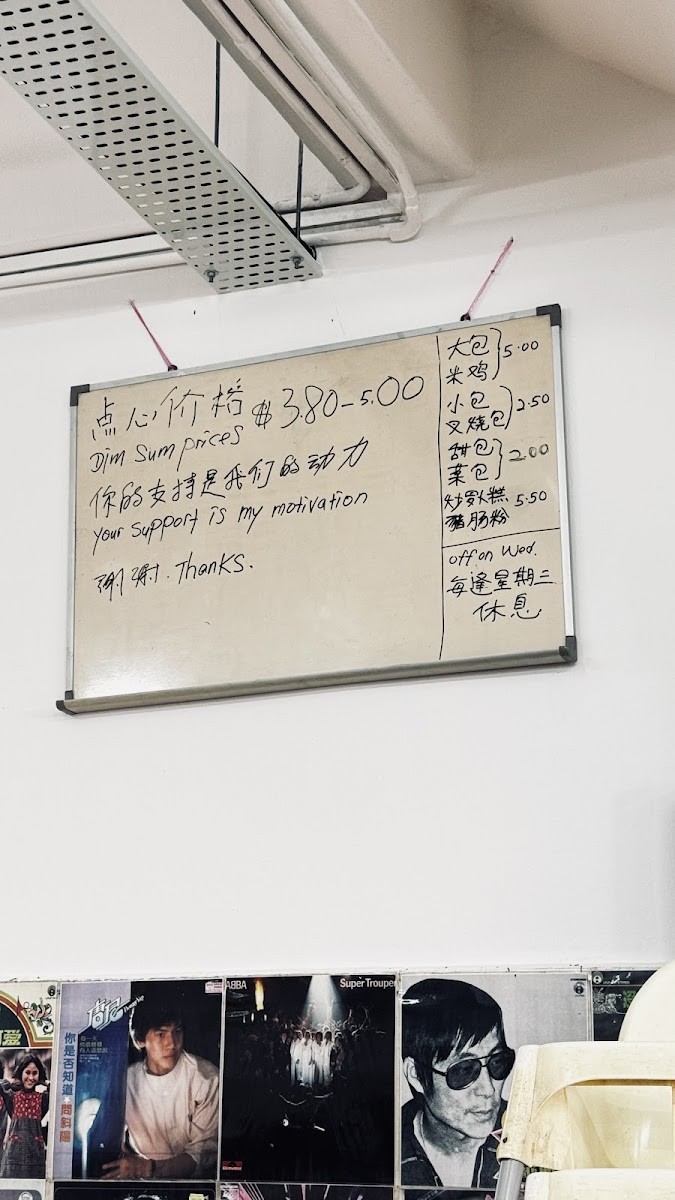 点心价格 $3.80-5.00
Dim sum prices
你的支持是我们的动力
your support is my motivation
谢谢. Thanks.
大包
米鸡 } 5.00
小包
叉烧包 } 2.50
甜包
菜包 } 2.00
炒萝卜糕 5.50
豬肠粉
off on Wed.
每逢星期三
休息.
你是否知道·問斜陽
ABBA
Super Trouper